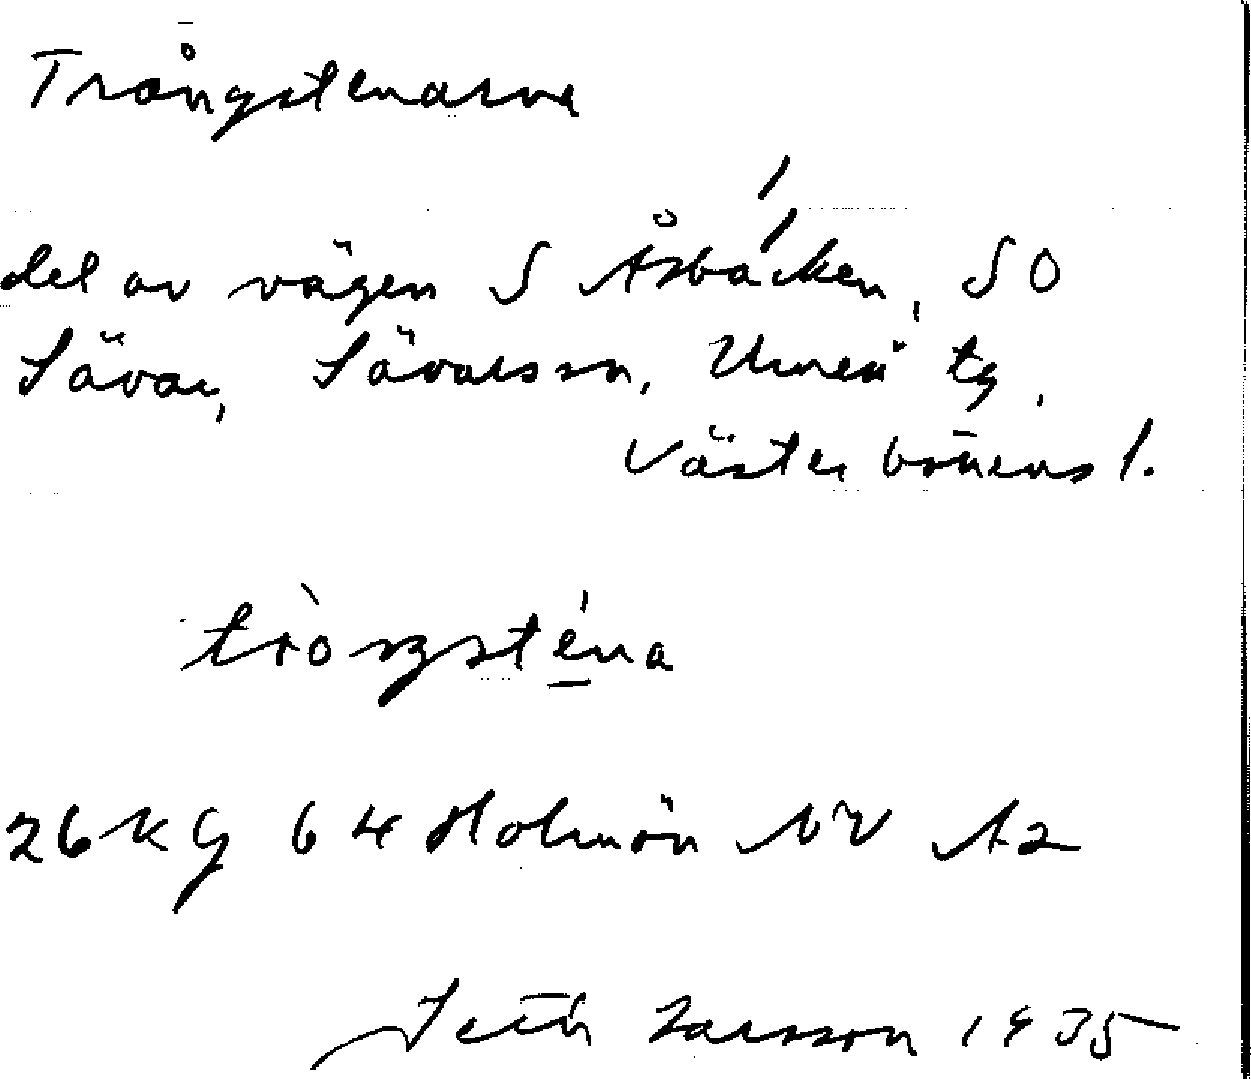 Trångstenarna
del av vägen S Åsbäcken, SO
Sävar, Sävars sn, Umeå tg,
Västerbottens l.
tròngsténa
26 KG 64 Holmön NV A2
Seth Larsson 1935